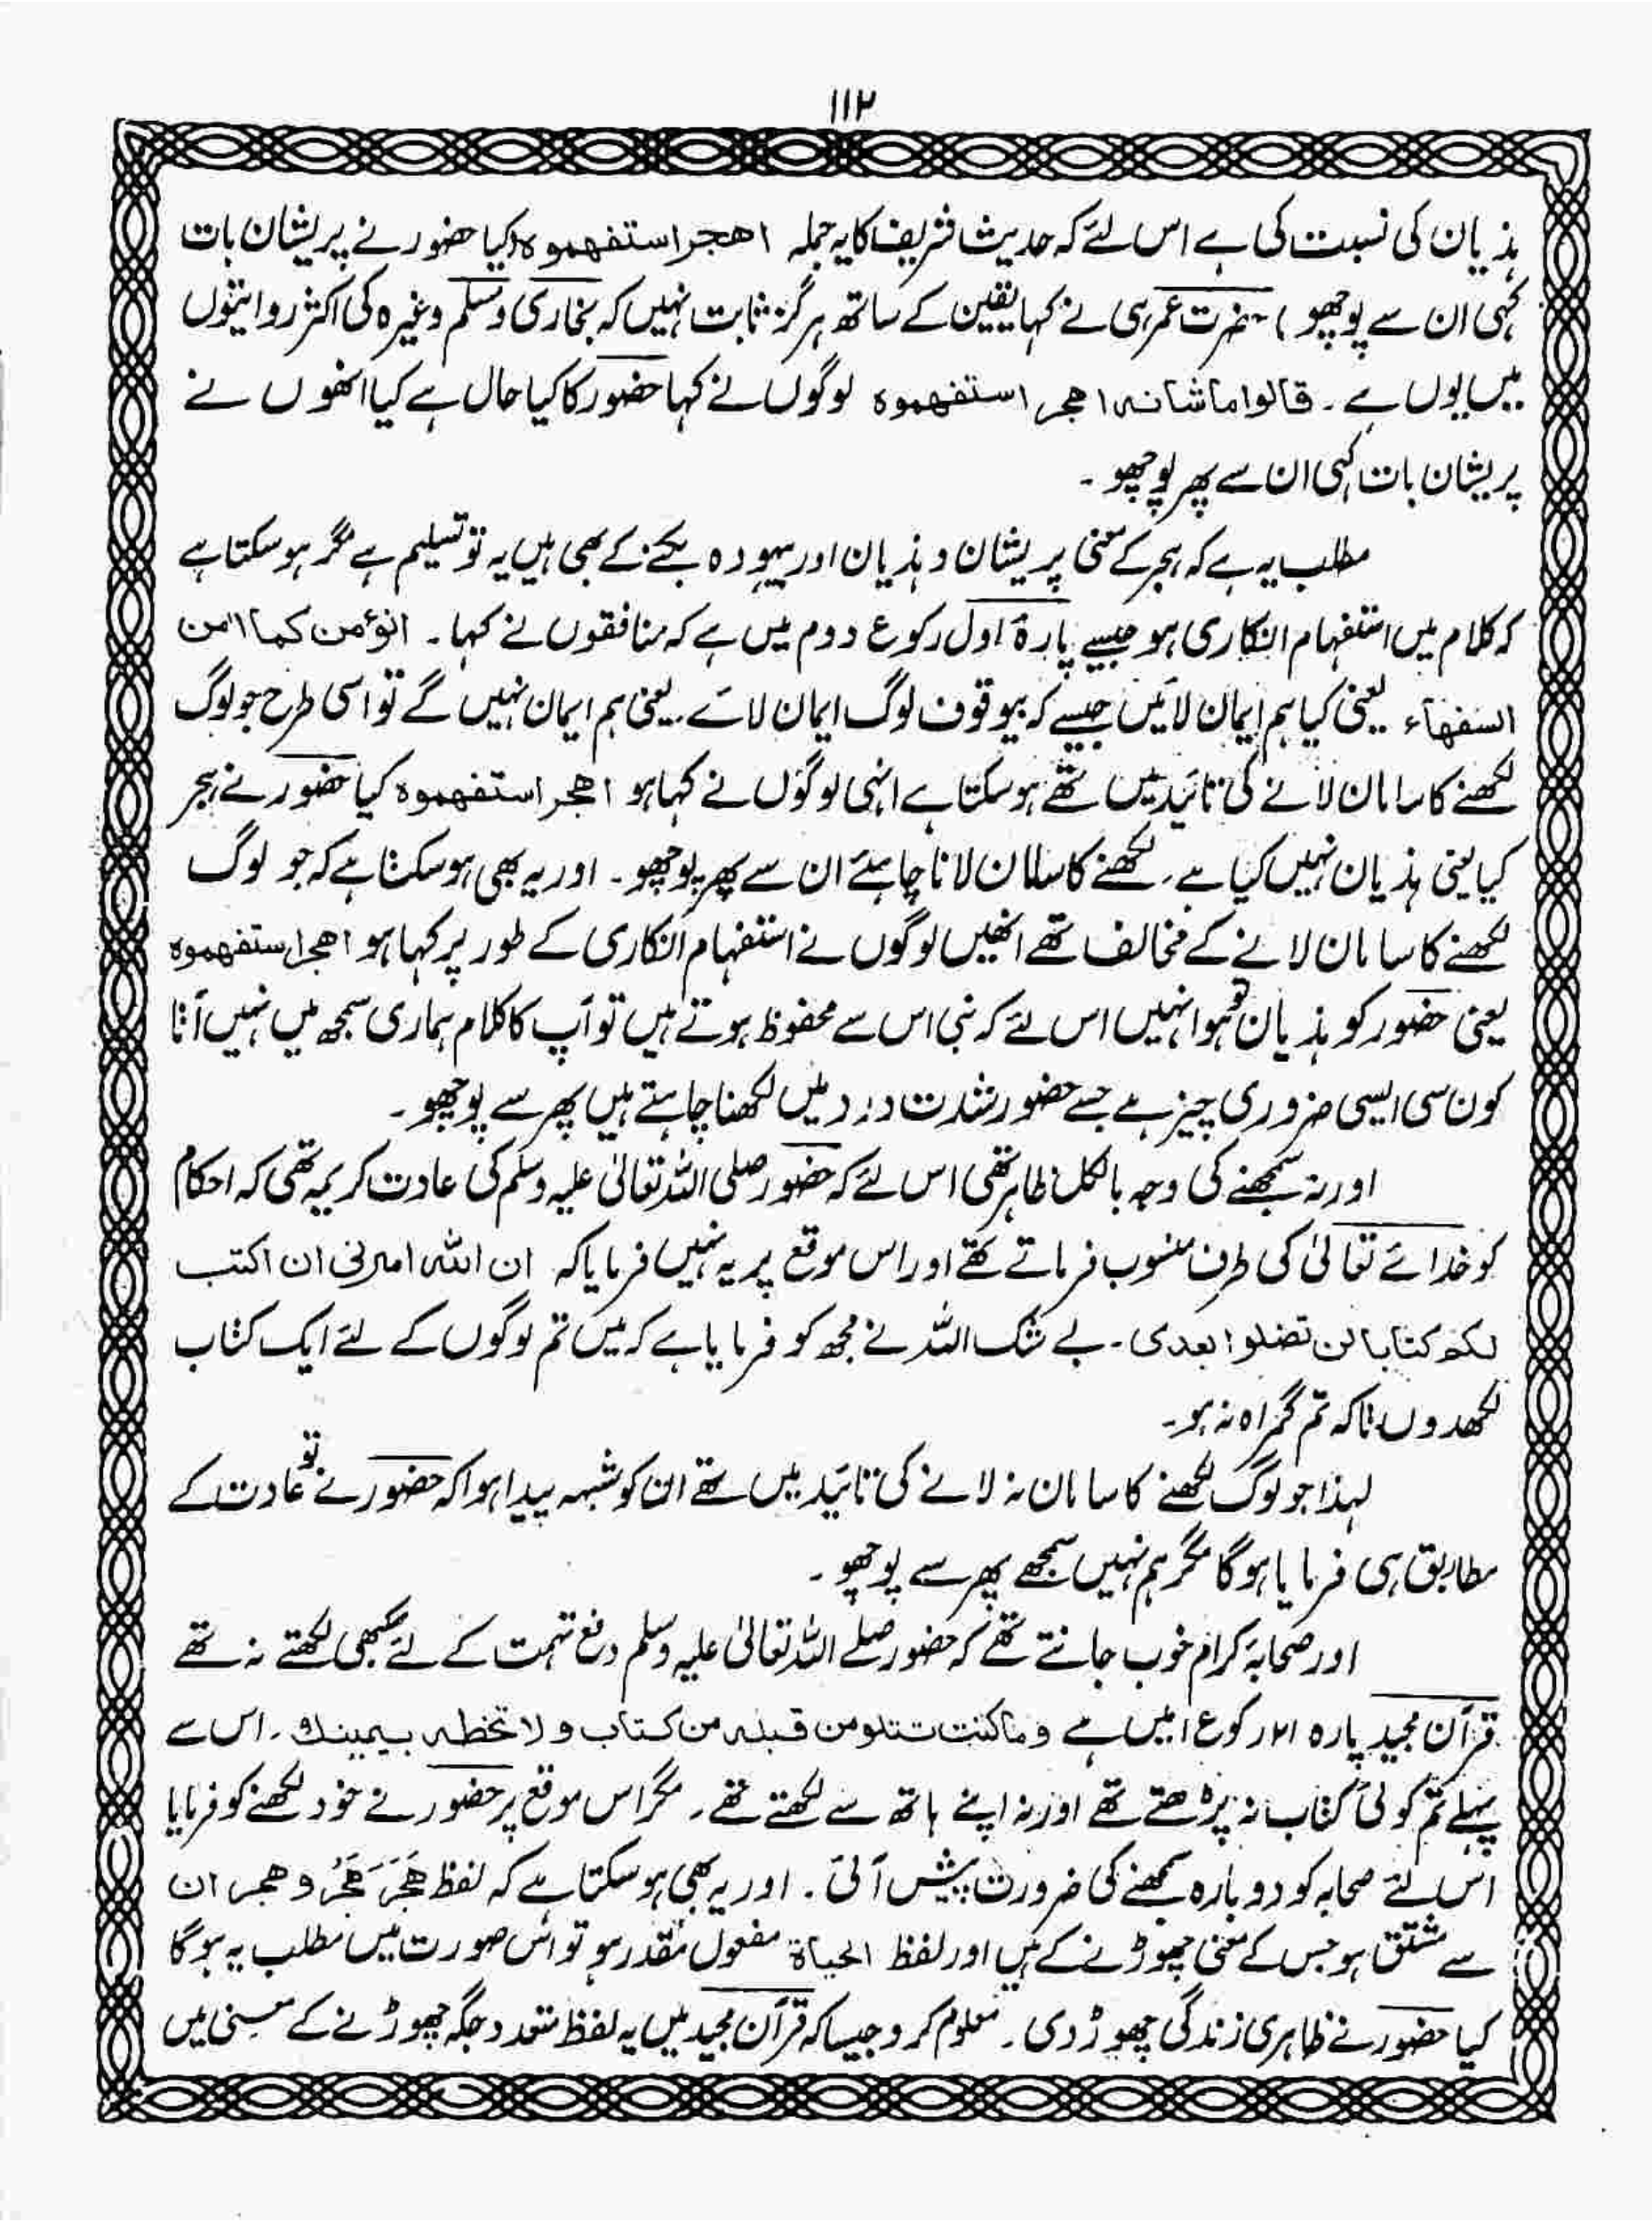 ۱۱۲
ہذیان کی نسبت کی ہے اس لئے کہ حدیث شریف کا یہ جملہ اھجر استفھموہ (کیا حضور نے پریشان بات
کہی ان سے پوچھو) حضرت عمر ہی نے کہا یقین کے ساتھ ہرگز ثابت نہیں کہ بخاری و مسلم وغیرہ کی اکثر روایتوں
میں یوں ہے ۔ قالوا ما شانہ اھجر استفھموہ لوگوں نے کہا حضور کا کیا حال ہے کیا انھوں نے
پریشان بات کہی ان سے پھر پوچھو ۔
مطلب یہ ہے کہ ہجر کے معنی پریشان و ہذیان اور بیہودہ بکنے کے بھی ہیں یہ تو تسلیم ہے مگر ہو سکتا ہے
کہ کلام میں استفہام انکاری ہو جیسے پارۂ اول رکوع دوم میں ہے کہ منافقوں نے کہا ۔ انؤمن کما اٰمن
السفھآء یعنی کیا ہم ایمان لائیں جیسے کہ بیوقوف لوگ ایمان لائے ۔ یعنی ہم ایمان نہیں گے تو اسی طرح جو لوگ
لکھنے کا سامان لانے کی تائید میں تھے ہو سکتا ہے انہی لوگوں نے کہا ہو اھجر استفھموہ کیا حضور نے ہجر
کیا یعنی ہذیان نہیں کیا ہے ۔ لکھنے کا سامان لانا چاہئے ان سے پھر پوچھو ۔ اور یہ بھی ہو سکتا ہے کہ جو لوگ
لکھنے کا سامان لانے کے مخالف تھے انھیں لوگوں نے استفہام انکاری کے طور پر کہا ہو اھجر استفھموہ
یعنی حضور کو ہذیان تو ہوا نہیں اس لئے کہ نبی اس سے محفوظ ہوتے ہیں تو آپ کا کلام ہماری سمجھ میں نہیں آتا
کون سی ایسی ضروری چیز ہے جسے حضور شدت درد میں لکھنا چاہتے ہیں پھر سے پوچھو ۔
اور نہ سمجھنے کی وجہ بالکل ظاہر تھی اس لئے کہ حضور صلی اللہ تعالیٰ علیہ وسلم کی عادت کریمہ تھی کہ احکام
کو خدائے تعالیٰ کی طرف منسوب فرماتے تھے اور اس موقع پر یہ نہیں فرمایا کہ ان اللہ امرنی ان اکتب
لکم کتابا لن تضلوا بعدی ۔ بے شک اللہ نے مجھ کو فرمایا ہے کہ میں تم لوگوں کے لئے ایک کتاب
لکھدوں تاکہ تم گمراہ نہ ہو ۔
لہذا جو لوگ لکھنے کا سامان نہ لانے کی تائید میں تھے ان کو شبہہ پیدا ہوا کہ حضور نے تو عادت کے
مطابق ہی فرمایا ہوگا مگر ہم نہیں سمجھے پھر سے پوچھو ۔
اور صحابۂ کرام خوب جانتے تھے کہ حضور صلے اللہ تعالیٰ علیہ وسلم دفع تہمت کے لئے کبھی لکھتے نہ تھے
قرآن مجید پارہ ۲۱ رکوع ۱ میں ہے وما کنت تتلو من قبلہ من کتاب ولا تخطہ بیمینک ۔ اس سے
پہلے تم کوئی کتاب نہ پڑھتے تھے اور نہ اپنے ہاتھ سے لکھتے تھے ۔ مگر اس موقع پر حضور نے خود لکھنے کو فرمایا
اس لئے صحابہ کو دوبارہ سمجھنے کی ضرورت پیش آئی ۔ اور یہ بھی ہو سکتا ہے کہ لفظ ھَجَرَ ھَجْرٌ و ھجران
سے مشتق ہو جس کے معنی چھوڑنے کے ہیں اور لفظ الحیاۃ مفعول مقدر ہو تو اس صورت میں مطلب یہ ہوگا
کیا حضور نے ظاہری زندگی چھوڑ دی ۔ معلوم کرو جیسا کہ قرآن مجید میں یہ لفظ متعدد جگہ چھوڑنے کے معنی میں